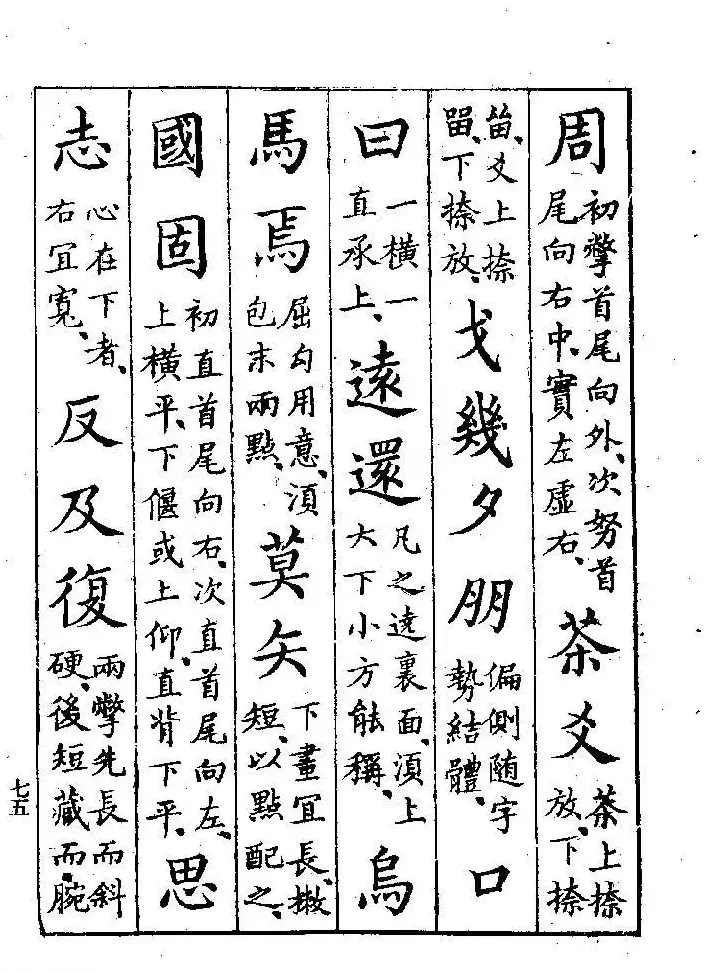 周 初撆首尾向外、次努首尾向右中、實左虛右、茶爻 茶上捺放、下捺
畄、爻上捺留、下捺放、戈幾夕朋 偏側随字勢結體、口
曰 一橫一直承上、遠還 凡之遶裏面、湏上大下小方能稱、烏
馬焉 屈勾用意、湏包末兩點、莫矢 下畫冝長、撇短、以點配之、
國固 初直首尾向右、次直首尾向左、上橫平、下偃或上仰、直背下平、思
志 心在下者、右冝寬、反及復 兩撆先長而斜硬、後短藏而、腕
七五